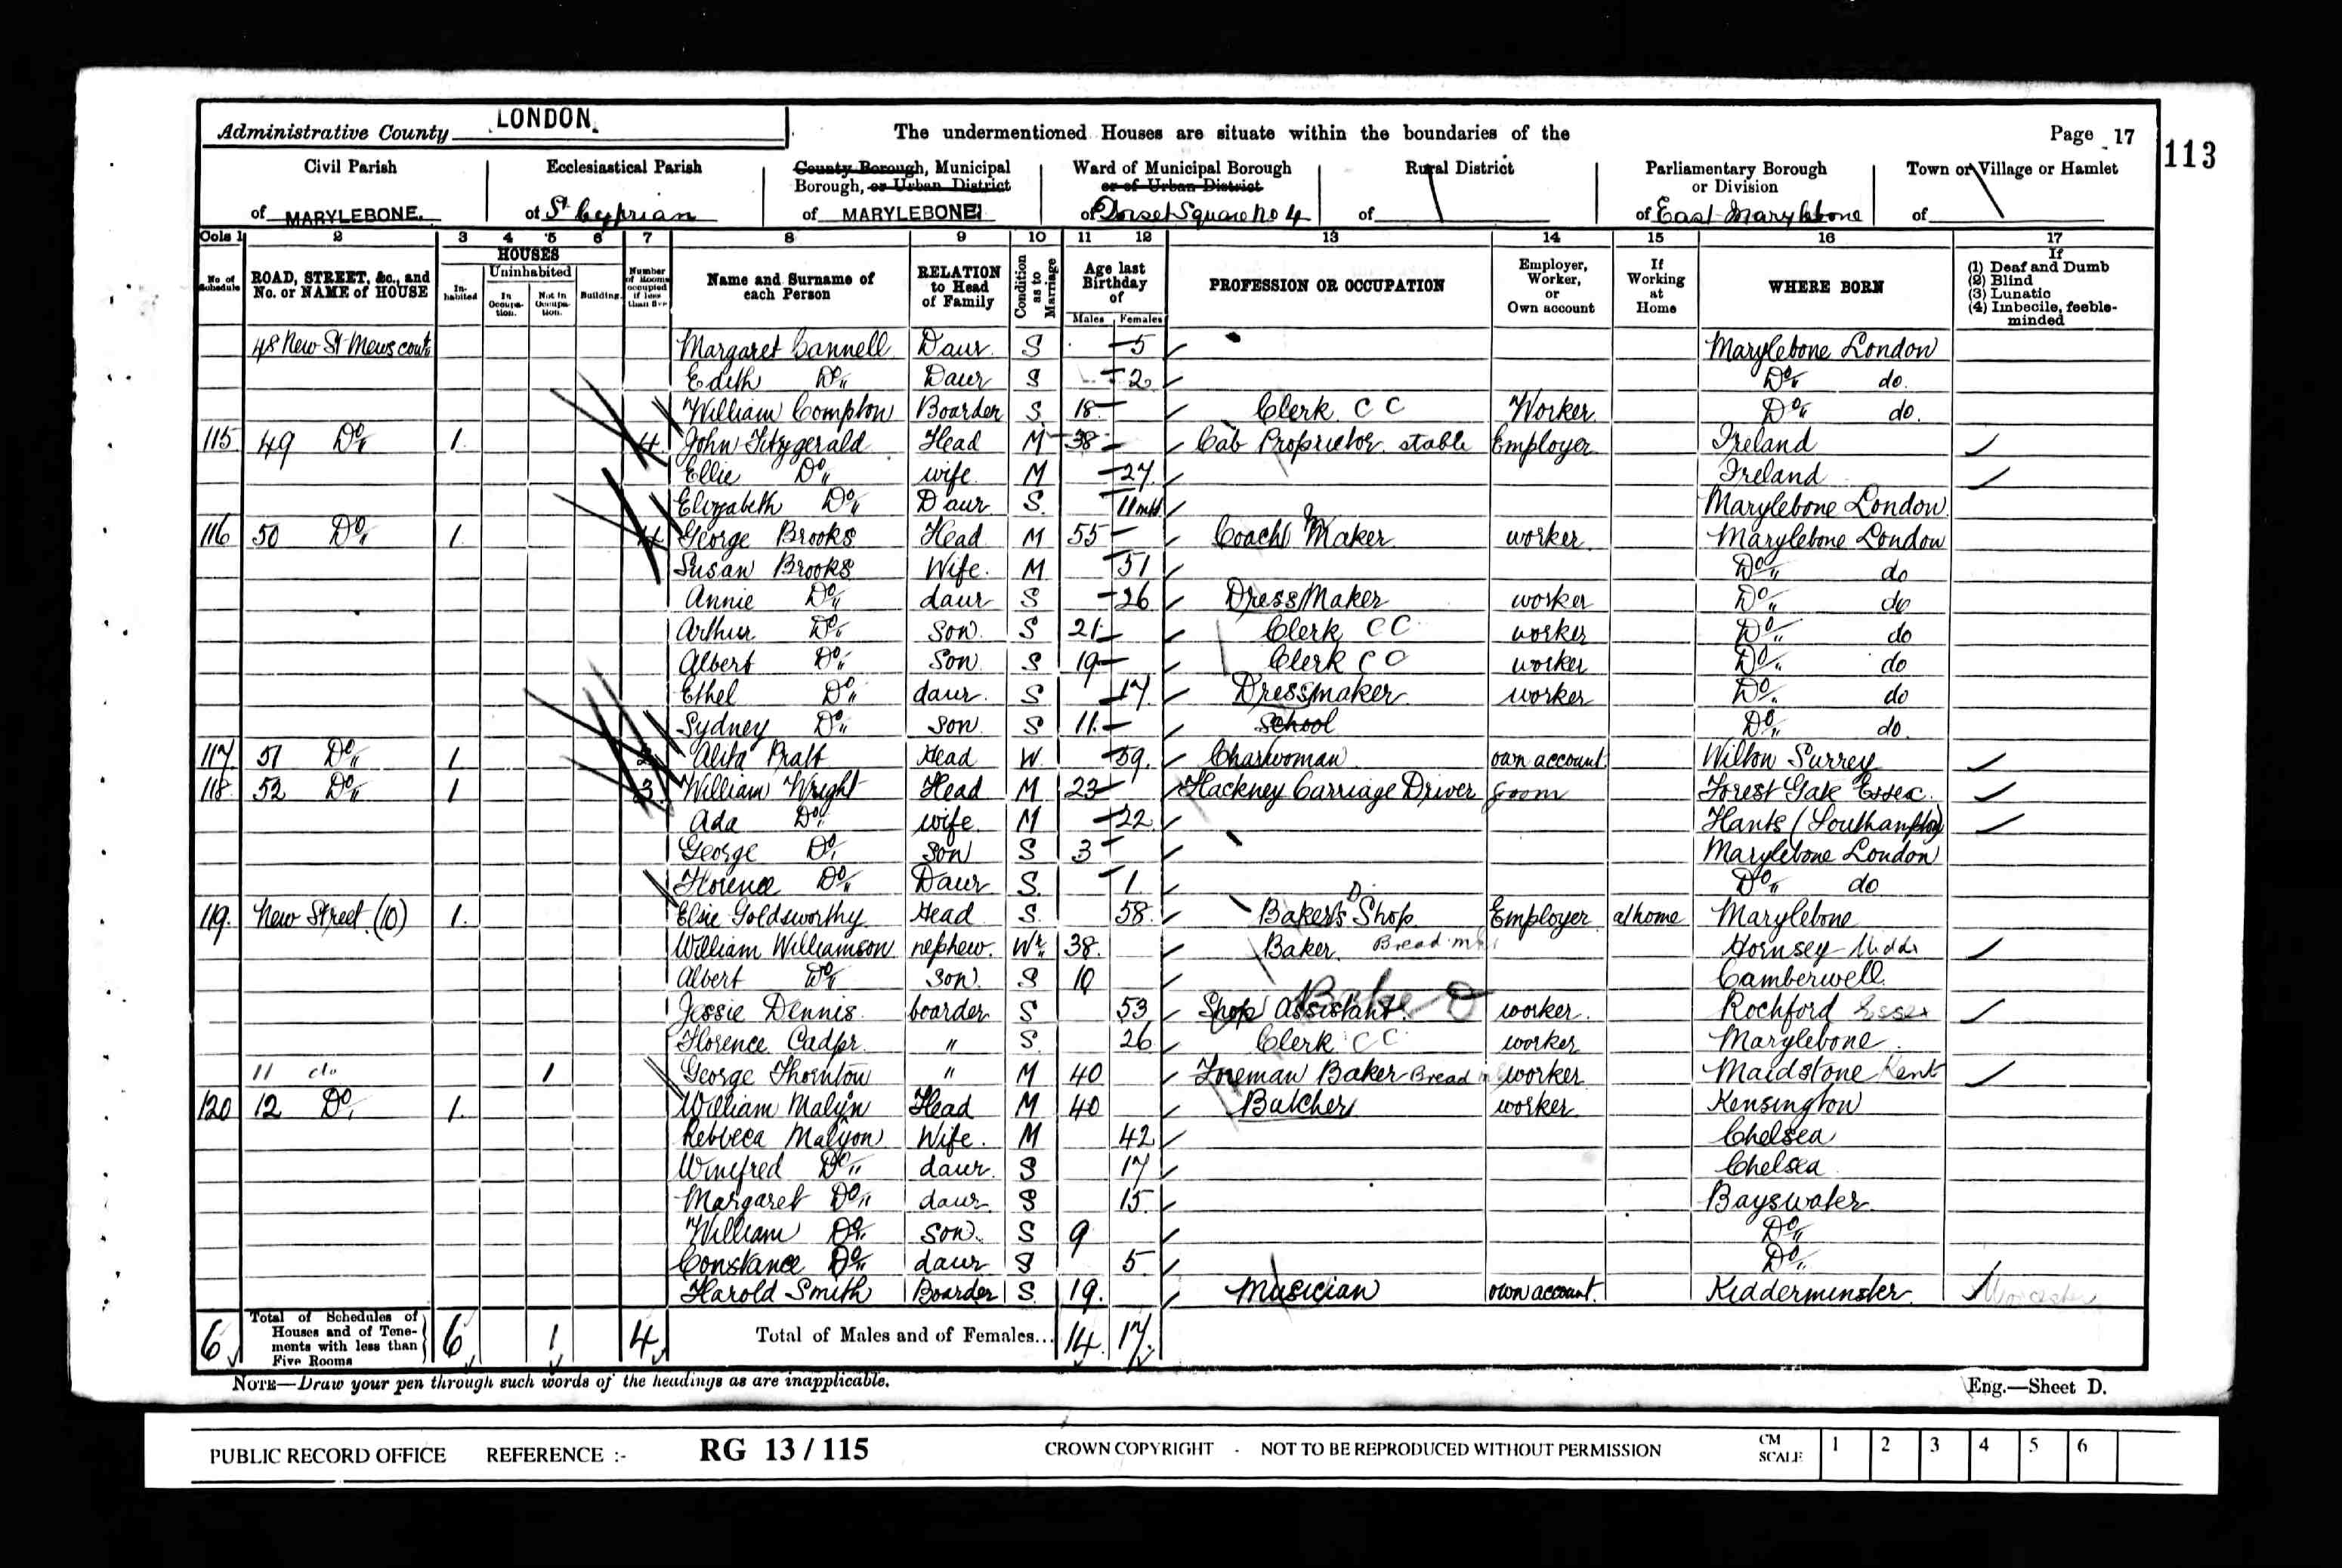 Administrative County LONDON.
The undermentioned Houses are situate within the boundaries of the
Page 17
113
Civil Parish of MARYLEBONE.
Ecclesiastical Parish of St Cyprian
County Borough, Municipal Borough, or Urban District of MARYLEBONE
Ward of Municipal Borough or of Urban District of Dorset Square No 4
Rural District of
Parliamentary Borough or Division of East Marylebone
Town or Village or Hamlet of
Cols 1 2 3 4 5 6 7 8 9 10 11 12 13 14 15 16 17
No of Schedule
ROAD, STREET, &c., and No. or NAME of HOUSE
HOUSES
Inhabited
Uninhabited
In Occupation.
Not in Occupation.
Building.
Number of Rooms occupied if less than five
Name and Surname of each Person
RELATION to Head of Family
Condition as to Marriage
Age last Birthday of
Males Females
PROFESSION OR OCCUPATION
Employer, Worker, or Own account
If Working at Home
WHERE BORN
If
(1) Deaf and Dumb
(2) Blind
(3) Lunatic
(4) Imbecile, feeble-minded
48 New St Mews cont Margaret Cannell Daur S 5 Marylebone London
Edith Do Daur S 2 Do do.
William Compton Boarder S 18 Clerk C C Worker Do do.
115 49 Do 1 4 John Fitzgerald Head M 38 Cab Proprietor stable Employer Ireland
Ellie Do wife M 27 Ireland
Elizabeth Do Daur S. 11 mth Marylebone London
116 50 Do 1 4 George Brooks Head M 55 Coach Maker worker Marylebone London
Susan Brooks Wife. M 51 Do do
Annie Do daur S 26 DressMaker worker Do do
Arthur Do Son S 21 Clerk C C worker Do do
Albert Do Son S 19 Clerk C C worker Do do
Ethel Do daur. S 17 Dressmaker worker Do. do
Sydney Do son S 11 School Do do.
117 51 Do 1 Pratt Head W 59. Charwoman own account Surrey
118 52 Do 1 3 William Wright Head M 23 Hackney Carriage Driver groom Forest Gate Essex.
Ada Do wife M 22 Hants (Southampton)
George Do Son S 3 Marylebone London
Florence Do Daur S. 1 Do do
119. New Street (10) 1. Elsie Goldsworthy Head S. 58. Bakers Shop D Employer at home Marylebone
William Williamson nephew. Wr 38. Baker Bread Hornsey Middx
Albert Do Son S 10 Camberwell
Jessie Dennis boarder S 53 Shop Assistant. Baker D worker. Rochford Essex
Florence " S. 26 Clerk C C worker Marylebone
11 do 1 George Thornton " M 40 Foreman Baker Bread worker Maidstone Kent
120 12 Do 1. William Malyn Head M 40 Butcher worker Kensington
Rebbeca Malyon Wife. M 42 Chelsea
Winefred Do daur. S 17 Chelsea
Margaret Do daur. S 15. Bayswater
William Do Son. S 9 Do
Constance Do daur S 5. Do
Harold Smith Boarder S. 19. Musician own account. Kidderminster Worcester
6 Total of Schedules of Houses and of Tenements with less than Five Rooms 6 1 4 Total of Males and of Females... 14 17
NOTE—Draw your pen through such words of the headings as are inapplicable.
Eng.—Sheet D.
PUBLIC RECORD OFFICE REFERENCE :- RG 13 / 115 CROWN COPYRIGHT - NOT TO BE REPRODUCED WITHOUT PERMISSION CM SCALE 1 2 3 4 5 6